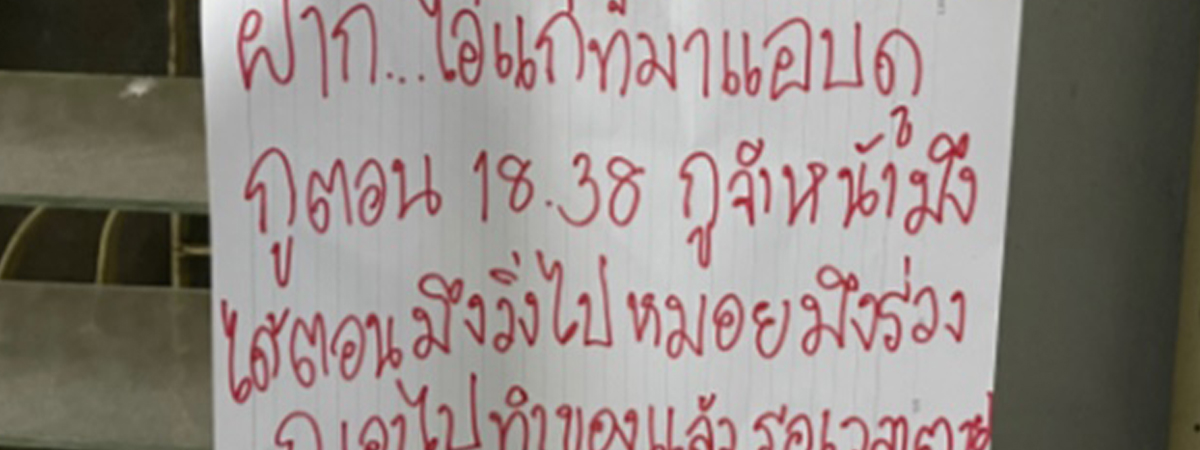 ฝาก...ไอ่แก่ที่มาแอบดู
กูตอน 18.38 กูจำหน้ามึง
ได้ตอนมึงวิ่งไป หมอยมึงร่วง
กูเอาไปทำของแล้ว รอเวลาตาย